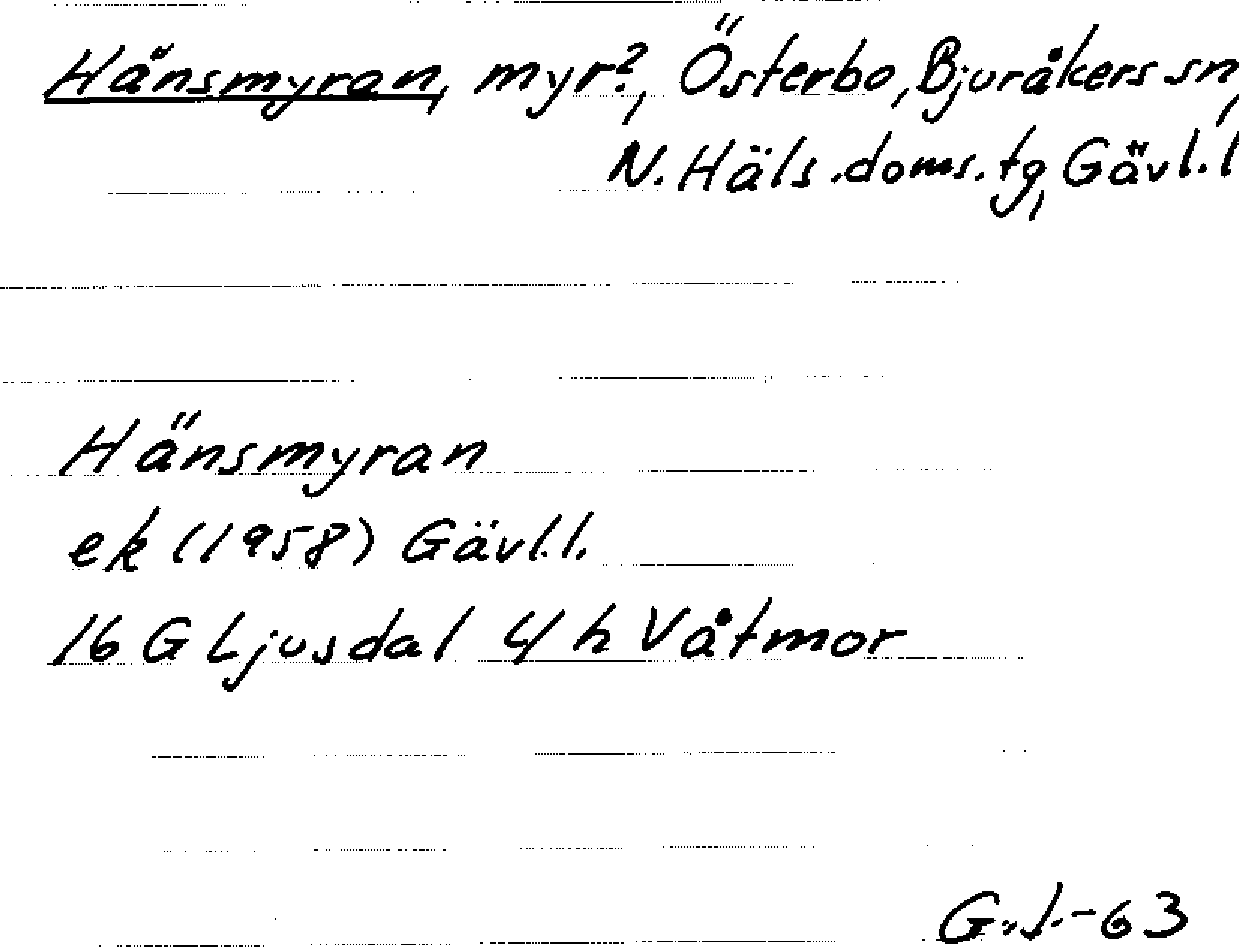 Hånsmyran, myr?, Österbo, Bjuråkers sn,
N. Häls. doms. tg, Gävl. l
Hänsmyran
ek (1958) Gävl.l.
16 G Ljusdal 4 h Våtmor
G.J.-63